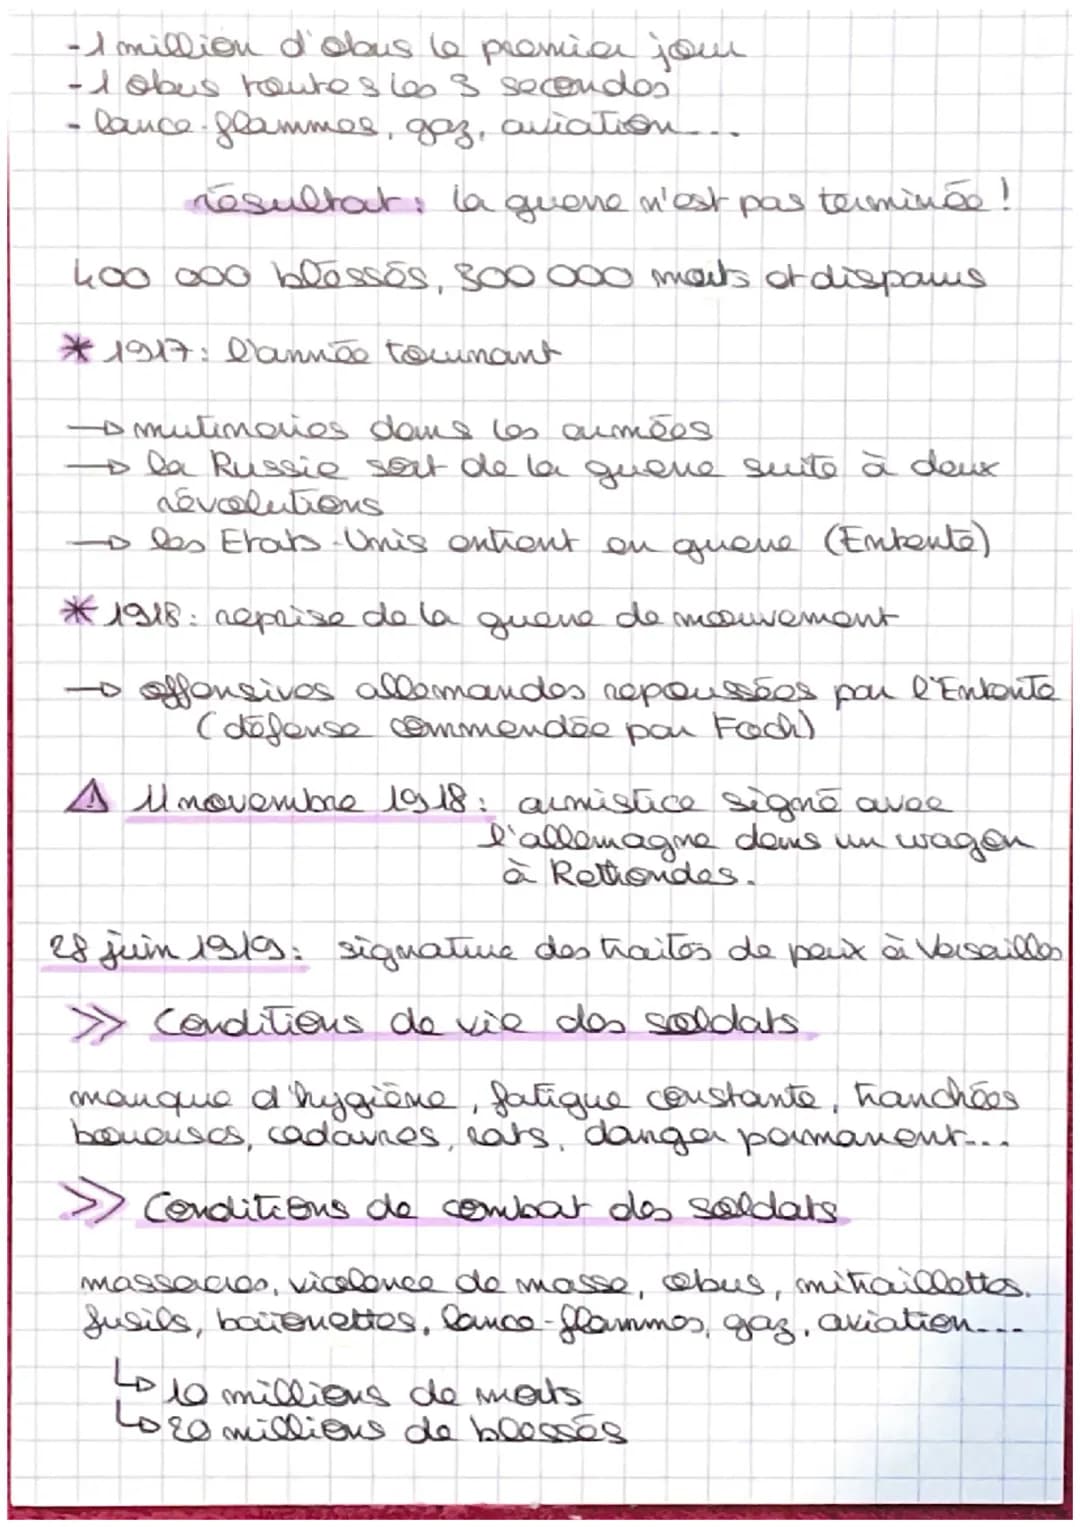 - 1 million d'obus le premier jour
- 1 obus toutes les 3 secondes
- lance-flammes, gaz, aviation...
résultat : la guerre n'est pas terminée !
400 000 blessés, 300 000 morts et disparus
* 1917 : l'année tournant
→ mutineries dans les armées
→ la Russie sort de la guerre suite à deux
révolutions
→ les Etats-Unis entrent en guerre (Entente)
* 1918 : reprise de la guerre de mouvement
→ offensives allemandes repoussées par l'Entente
(défense commendée par Foch)
⚠ 11 novembre 1918 : armistice signé avec
l'allemagne dans un wagon
à Rethondes.
28 juin 1919 : signature des traités de paix à Versailles
>> Conditions de vie des soldats
manque d'hygiène, fatigue constante, tranchées
boueuses, cadavres, rats, danger permanent...
>> Conditions de combat des soldats
massacres, violence de masse, obus, mitraillettes,
fusils, baïonettes, lance-flammes, gaz, aviation...
↳ 10 millions de morts
↳ 20 millions de blessés